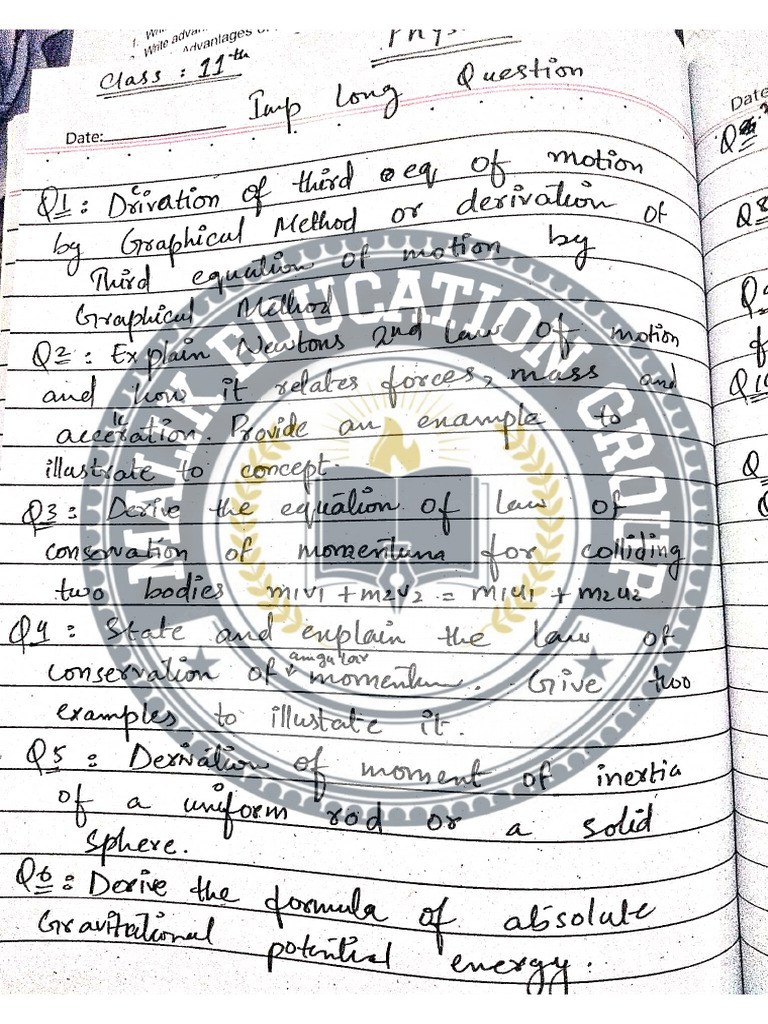 Write advan
Advantages o
Phys
Class : 11th
Imp Long Question
Date:
Q1 : Drivation of third eq of motion
by Graphical Method or derivation of
Third equation of motion by
Graphical Method
Q2 : Explain Newtons 2nd law of motion
and how it relates forces, mass and
acceleration. Provide an example to
illustrate to concept.
Q3 : Derive the equation of law of
conservation of momentum for colliding
two bodies m1v1 + m2v2 = m1u1 + m2u2
Q4 : State and explain the law of
conservation of angular momentum. Give two
examples to illustate it.
Q5 : Derivation of moment of inertia
of a uniform rod or a solid
sphere.
Q6 : Derive the formula of absolute
Gravitational potential energy.
MALIK EDUCATION GROUP
Date:
Q8